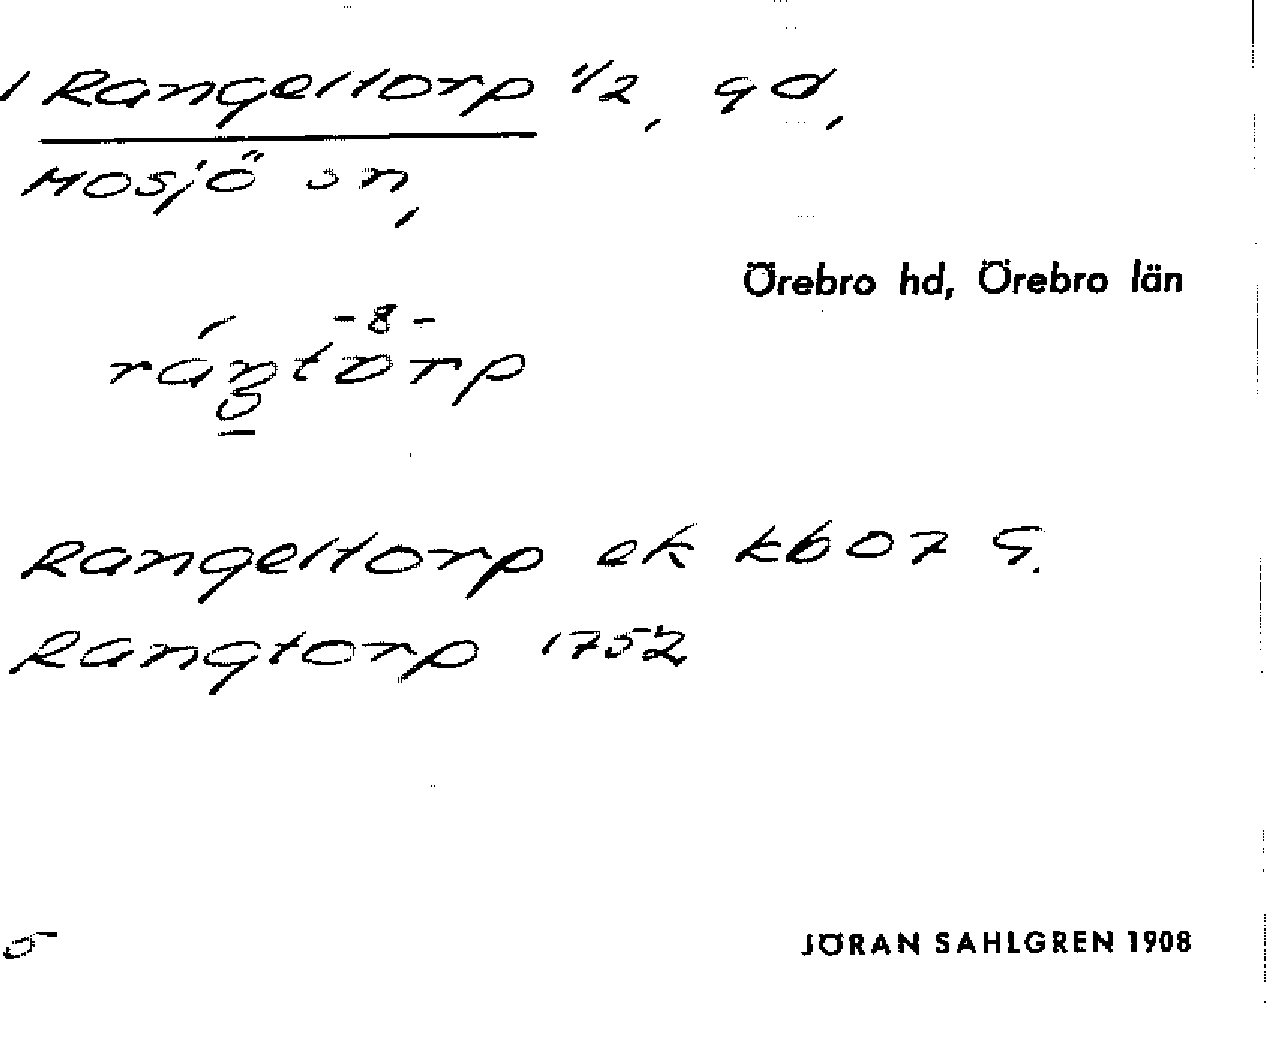 Rangeltorp 1/2, gd,
Mosjö sn,
Örebro hd, Örebro län
-8-
Rangeltorp ek kb 07 9.
Rangtorp 1752
JÖRAN SAHLGREN 1908